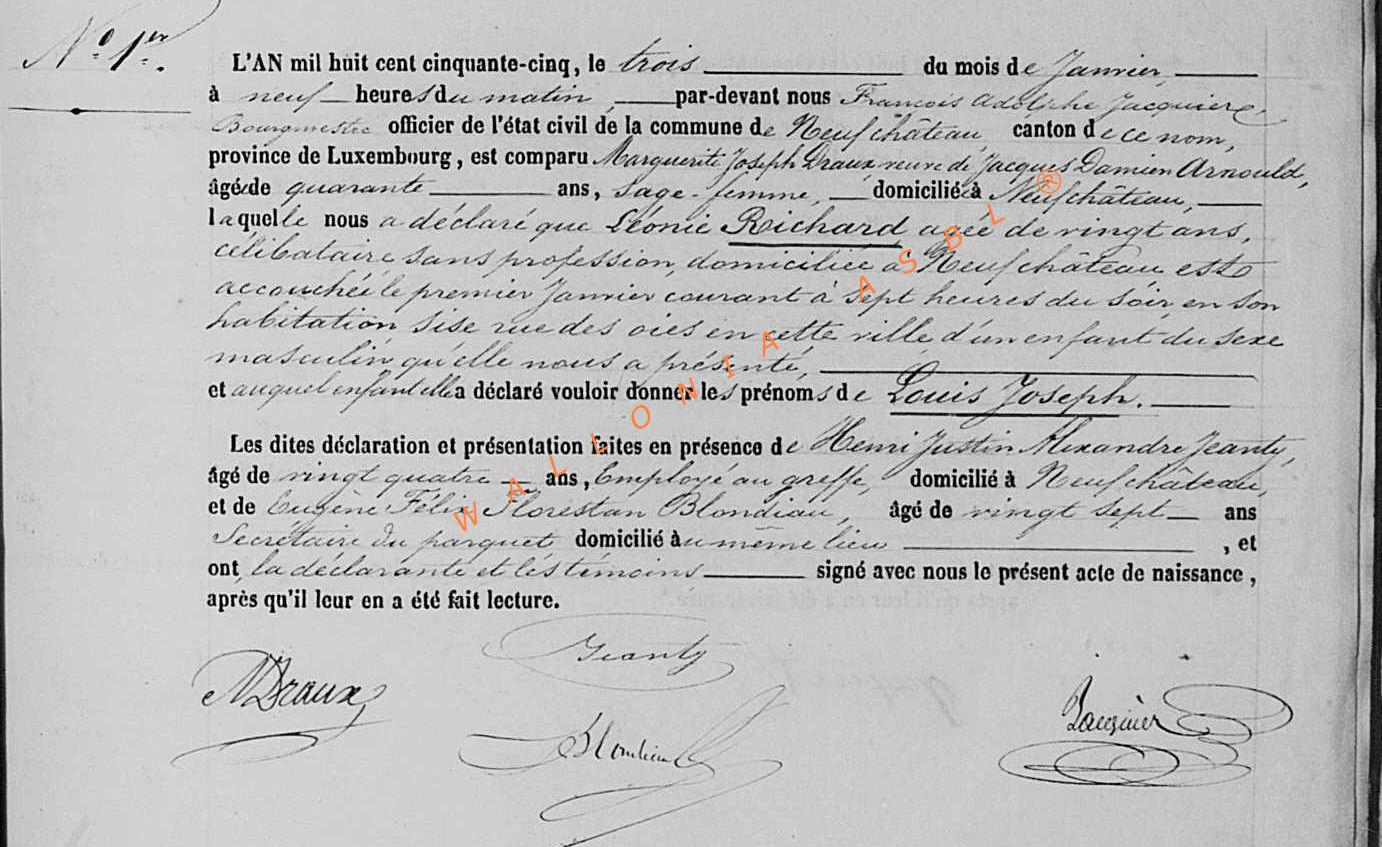 N° 1er.
L'AN mil huit cent cinquante-cinq, le trois du mois de Janvier
à neuf heures du matin, par-devant nous François Adolphe Jacquier,
Bourgmestre officier de l'état civil de la commune de Neufchâteau, canton de ce nom,
province de Luxembourg, est comparu Marguerite Joseph Draux, veuve de Jacques Damien Arnould,
âgée de quarante ans, sage-femme, domiciliée à Neufchâteau,
laquelle nous a déclaré que Léonie Richard agée de vingt ans,
célibataire sans profession, domiciliée à Neufchâteau est
accouchée le premier Janvier courant à sept heures du soir en son
habitation sise rue des oies en cette ville d'un enfant du sexe
masculin qu'elle nous a présenté,
et auquel enfant elle a déclaré vouloir donner les prénoms de Louis Joseph.
Les dites déclaration et présentation faites en présence de Henri Justin Alexandre Jeanty,
âgé de vingt quatre ans, Employé au greffe, domicilié à Neufchâteau,
et de Eugène Félix Florestan Blondiau, âgé de vingt sept ans
Secrétaire du parquet domicilié au même lieu , et
ont, la déclarante et les témoins signé avec nous le présent acte de naissance,
après qu'il leur en a été fait lecture.
Jeanty
MDraux
Blondiau
Jacquier
WALLONIA ASBL ®